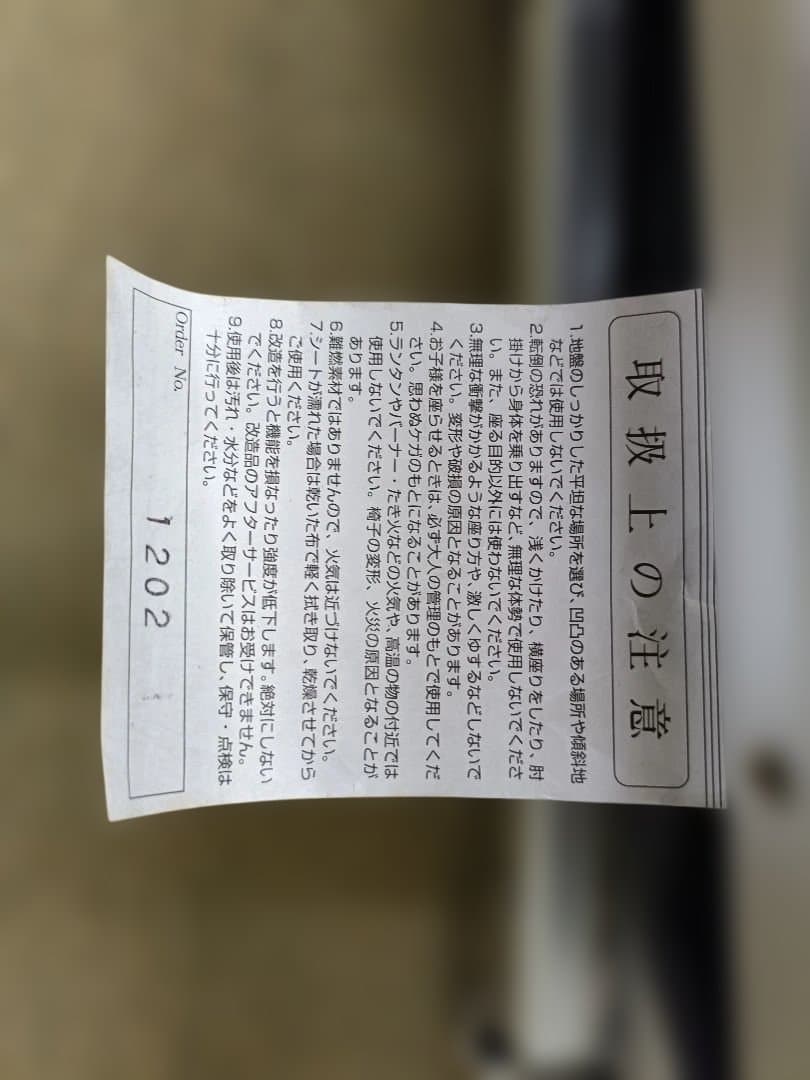 取扱上の注意
1.地盤のしっかりした平坦な場所を選び、凹凸のある場所や傾斜地
などでは使用しないでください。
2.転倒の恐れがありますので、浅くかけたり、横座りをしたり、肘
掛けから身体を乗り出すなど、無理な体勢で使用しないでくださ
い。また、座る目的以外には使わないでください。
3.無理な衝撃がかかるような座り方や、激しくゆするなどしないで
ください。変形や破損の原因となることがあります。
4.お子様を座らせるときは、必ず大人の管理のもとで使用してくだ
さい。思わぬケガのもとになることがあります。
5.ランタンやバーナー・たき火などの火気や、高温の物の付近では
使用しないでください。椅子の変形、火災の原因となることが
あります。
6.難燃素材ではありませんので、火気は近づけないでください。
7.シートが濡れた場合は乾いた布で軽く拭き取り、乾燥させてから
ご使用ください。
8.改造を行うと機能を損なったり強度が低下します。絶対にしない
でください。改造品のアフターサービスはお受けできません。
9.使用後は汚れ・水分などをよく取り除いて保管し、保守・点検は
十分に行ってください。
Order No.
1202